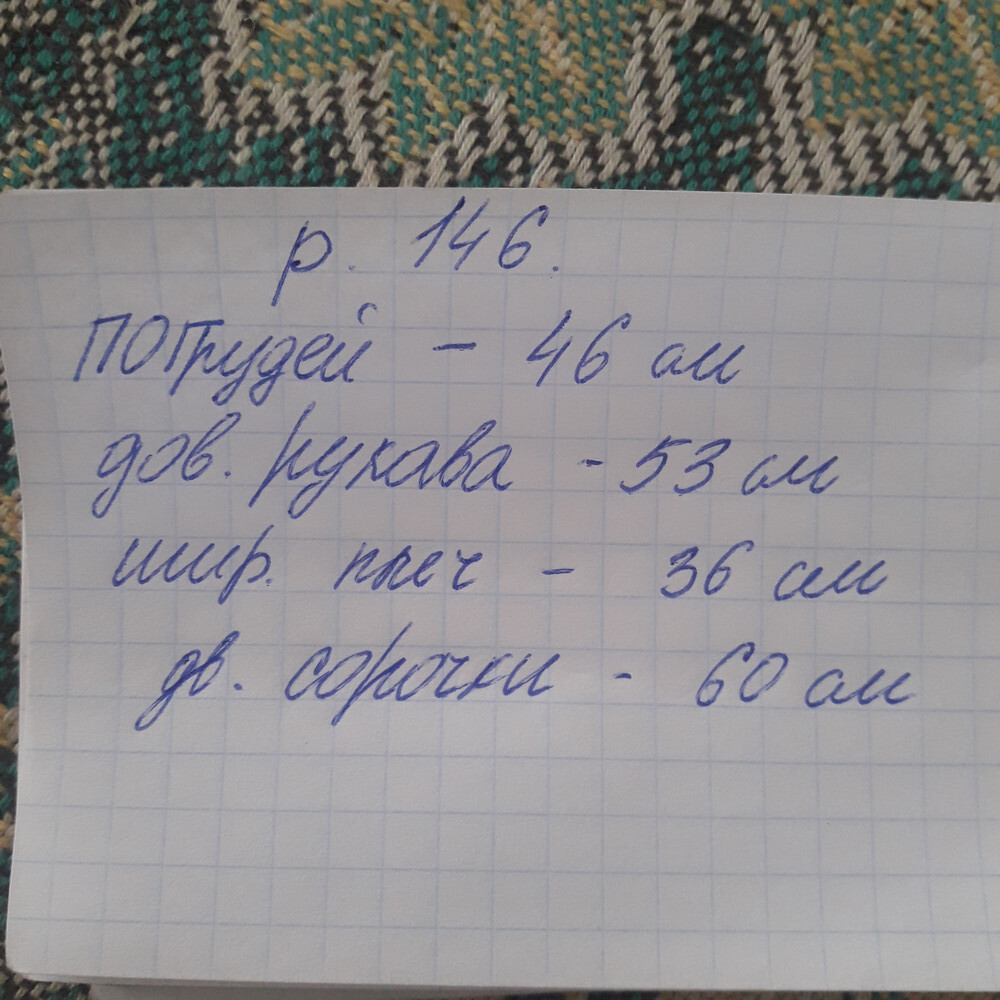 р. 146.
ПОГрудей - 46 см
дов. рукава - 53 см
шир. плеч - 36 см
дв. сорочки - 60 см